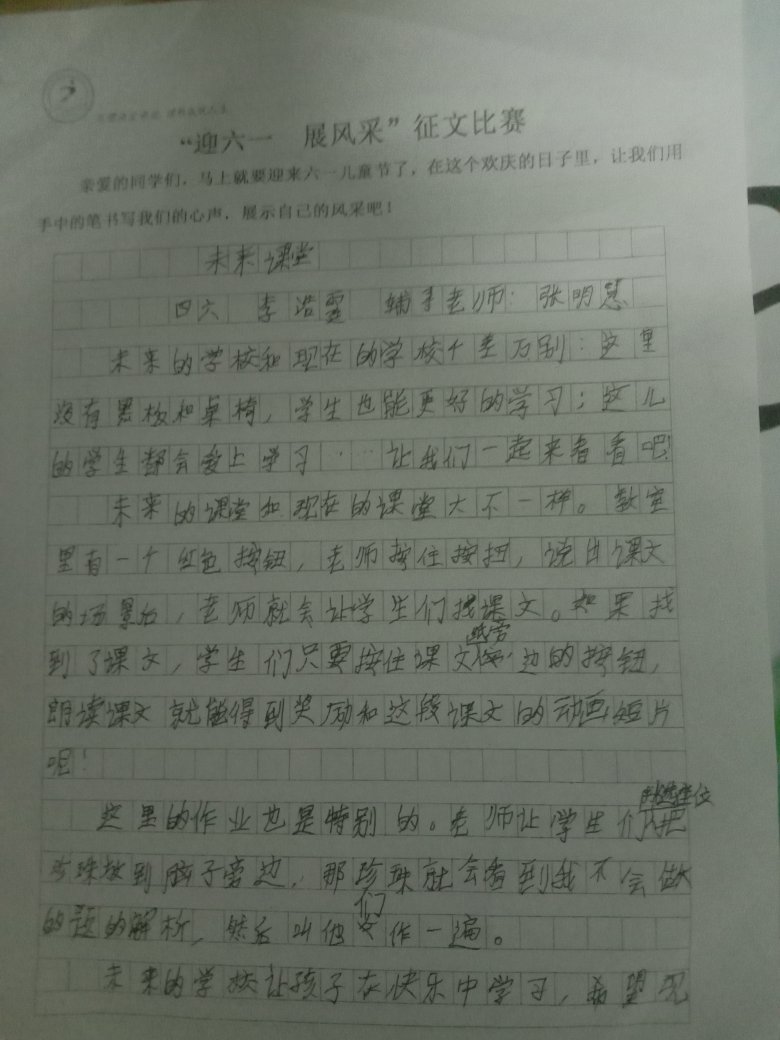 “迎六一 展风采”征文比赛
亲爱的同学们，马上就要迎来六一儿童节了，在这个欢庆的日子里，让我们用
手中的笔书写我们的心声，展示自己的风采吧！
未来课堂
四六 李浩 辅导老师：张明慧
未来的学校和现在的学校千差万别：这里
没有黑板和桌椅，学生也能更好的学习；这儿
的学生都会爱上学习……让我们一起来看看吧！
未来的课堂和现在的课堂大不一样。教室
里有一个红色按钮，老师按住按扭，说出课文
的场景后，老师就会让学生们找课文。如果找
到了课文，学生们只要按住课文旁边的按钮，
朗读课文就能得到奖励和这段课文的动画短片
呢！
这里的作业也是特别的。老师让学生们把
珍珠放到脑子旁边，那珍珠就会看到我不会做
的题的解析，然后叫他们作一遍。
未来的学校让孩子在快乐中学习，希望现